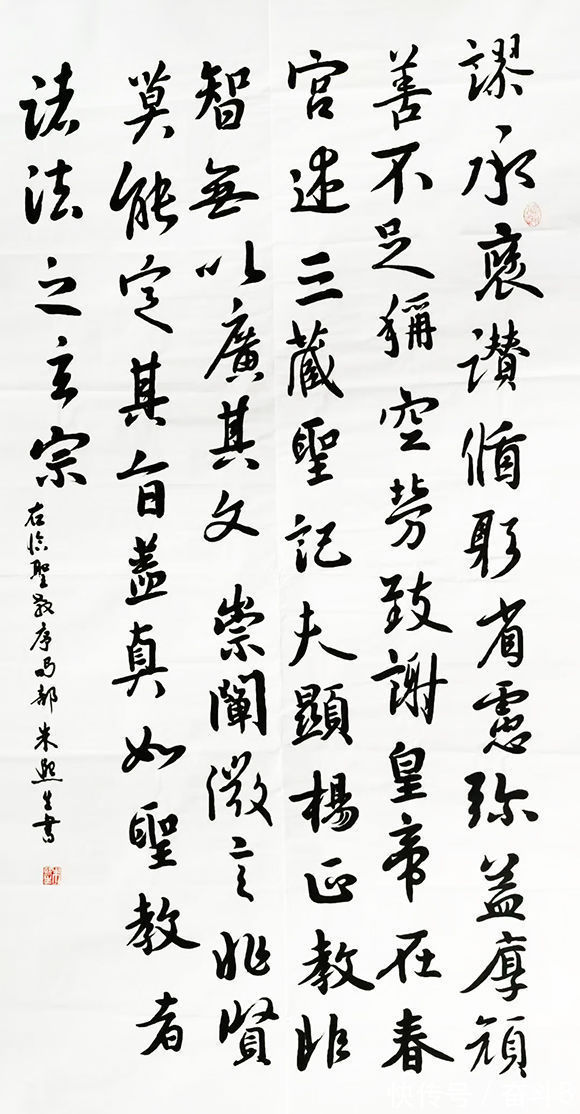 謬承褒讃循躬省慮弥益厚顔
善不足稱空勞致謝皇帝在春
宮述三藏聖記夫顯楊正教非
智無以廣其文崇闡微言非賢
莫能定其旨蓋真如聖教者
諸法之玄宗
右临聖教序局部 朱熙生書
快传号 /